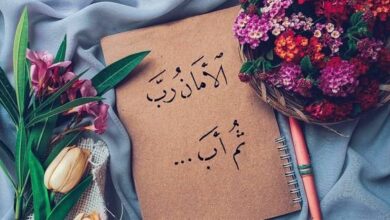 الأمان رُبَّ
ثُم أب ...